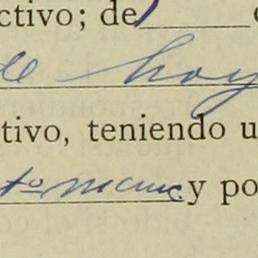 ctivo; de
de hoy
tivo, teniendo u
y po